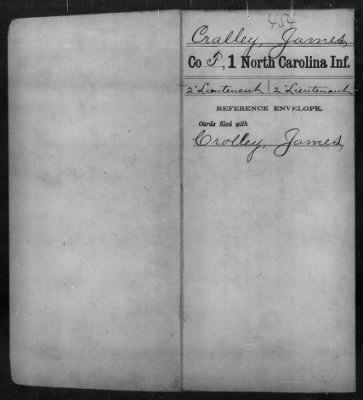 454
Cralley, James
Co F, 1 North Carolina Inf.
2" Lieutenant | 2" Lieutenant
REFERENCE ENVELOPE.
Cards filed with
Crolley, James